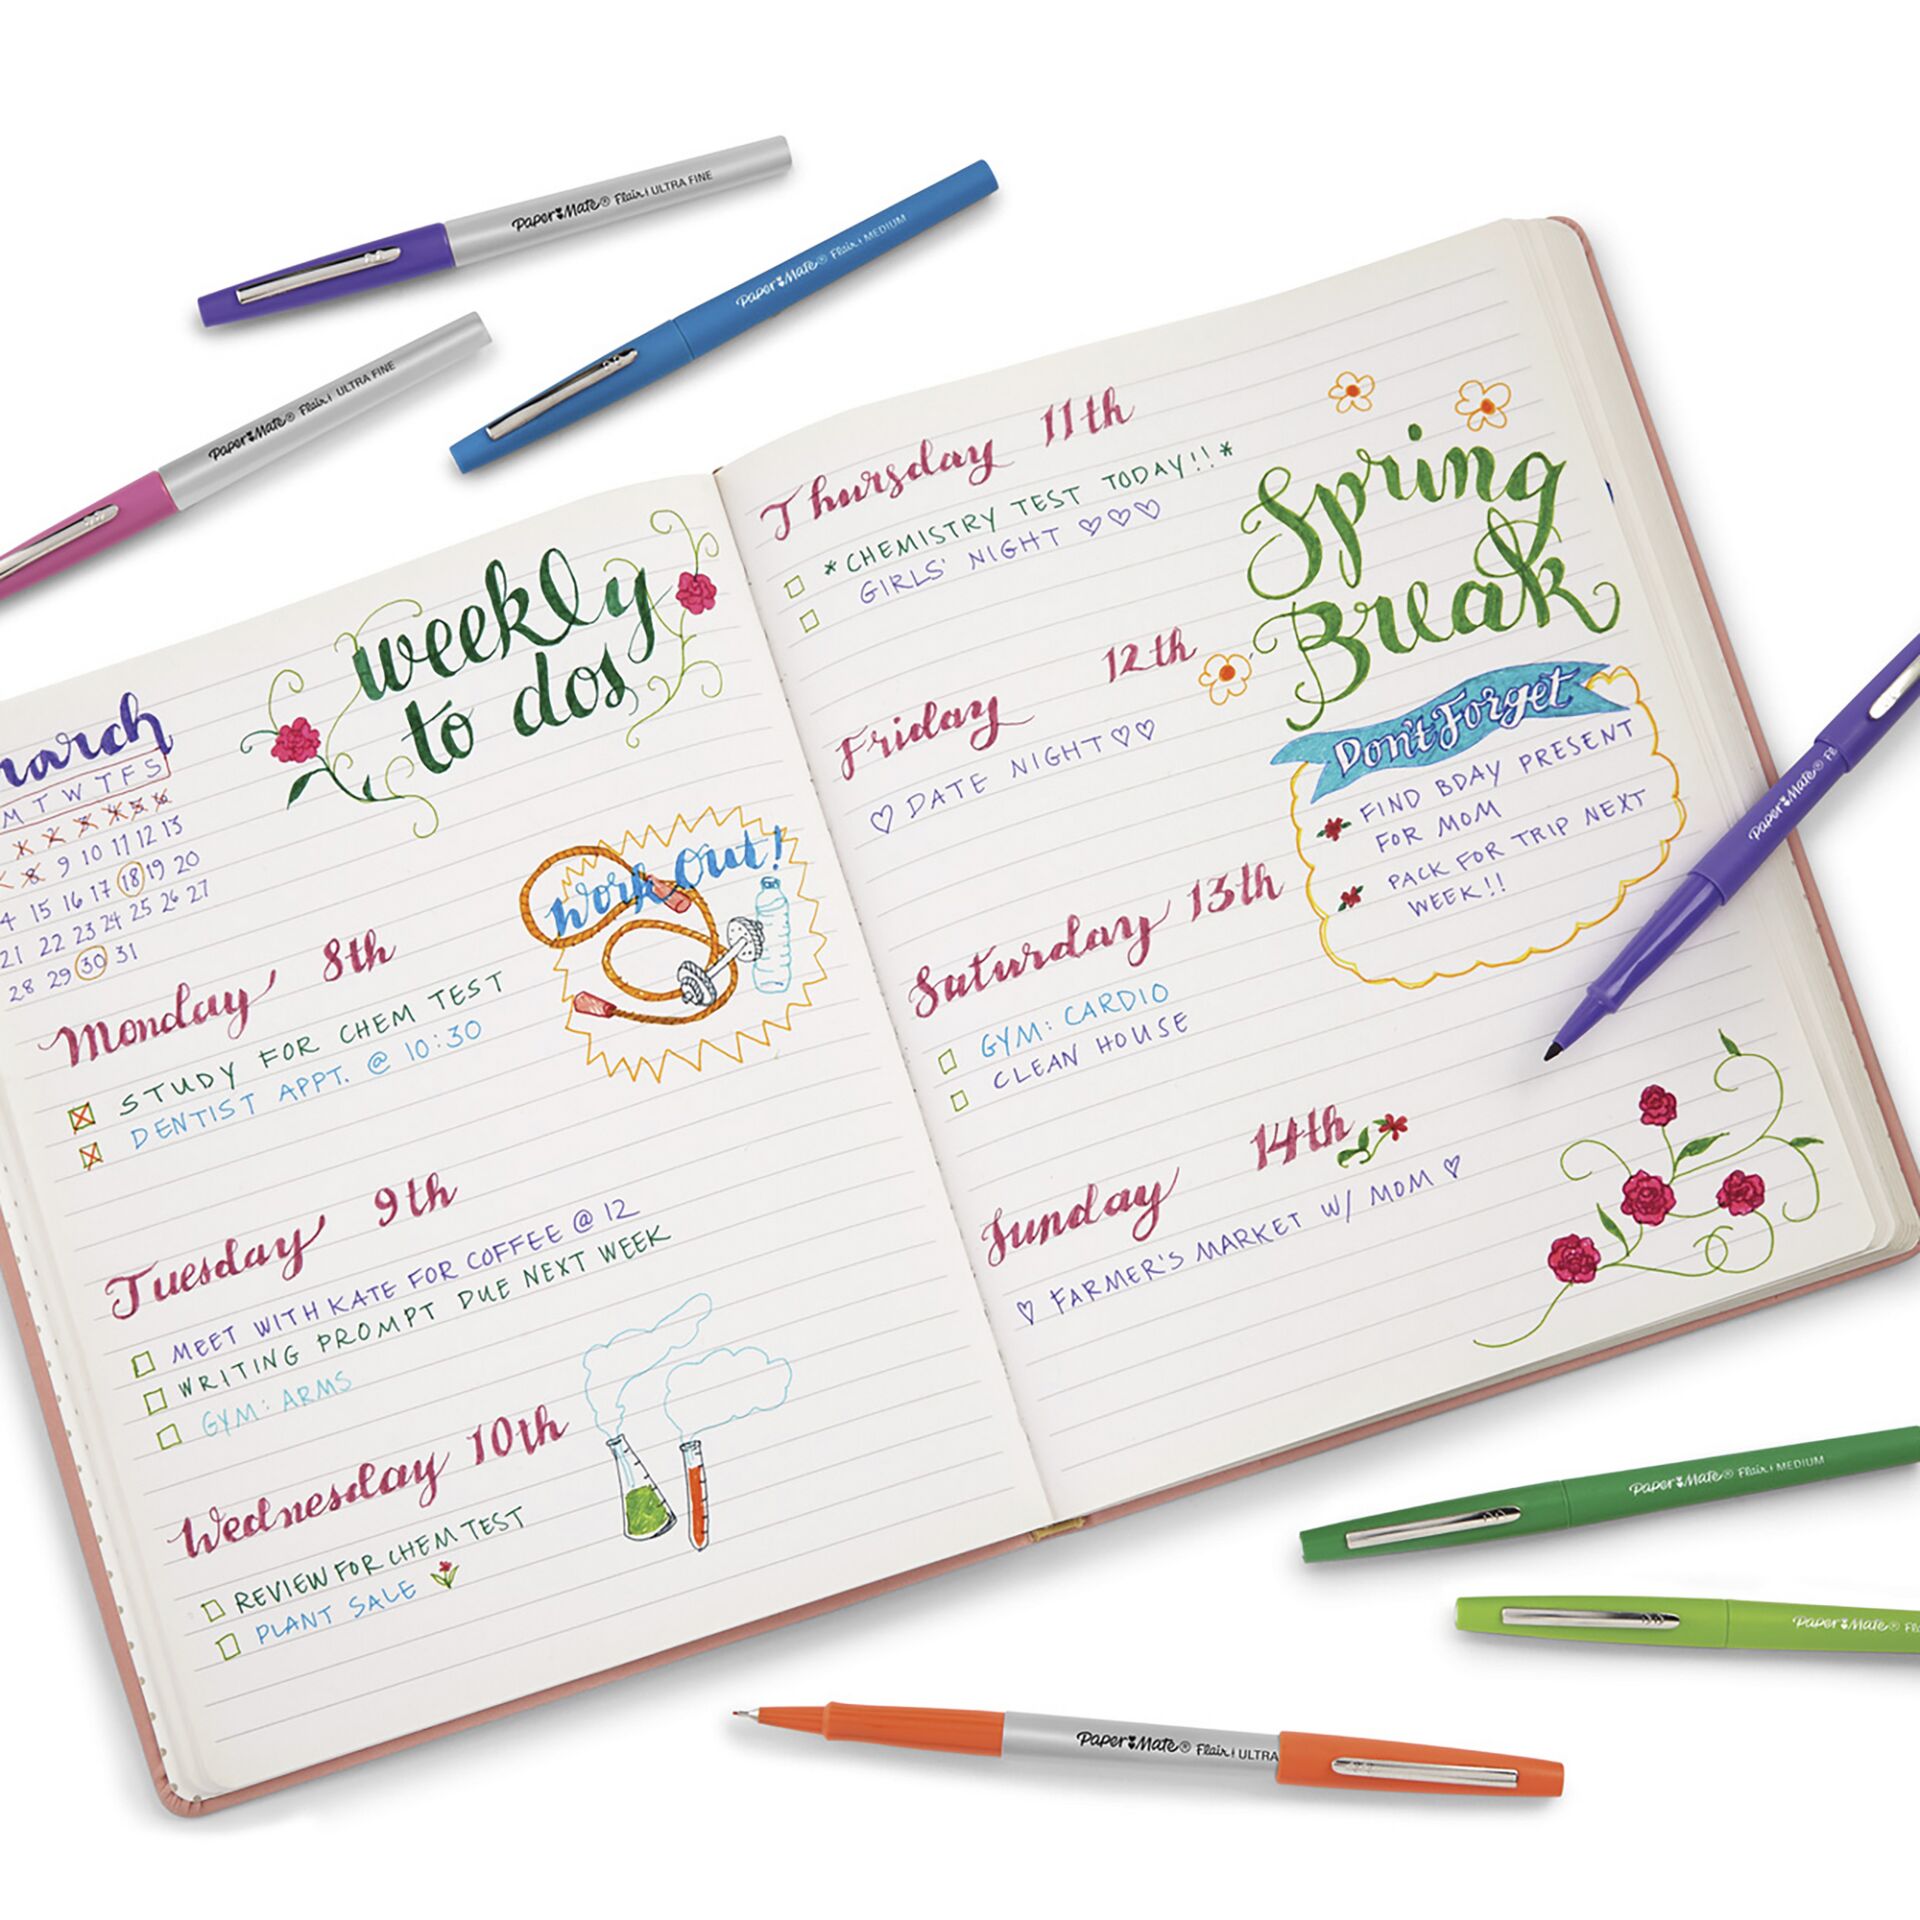 Paper Mate® Flair | ULTRA FINE
Paper Mate® Flair | MEDIUM
Paper Mate® Flair | ULTRA FINE
weekly
to dos
M T W T F S
1 2 3 4 5 6
8 9 10 11 12 13
15 16 17 18 19 20
21 22 23 24 25 26 27
28 29 30 31
Work Out!
Monday 8th
STUDY FOR CHEM TEST
DENTIST APPT. @ 10:30
Tuesday 9th
MEET WITH KATE FOR COFFEE @ 12
WRITING PROMPT DUE NEXT WEEK
GYM: ARMS
Wednesday 10th
REVIEW FOR CHEM TEST
PLANT SALE
Thursday 11th
*CHEMISTRY TEST TODAY!!*
GIRLS' NIGHT ♡♡♡
Friday 12th
♡ DATE NIGHT ♡♡
Saturday 13th
GYM: CARDIO
CLEAN HOUSE
Sunday 14th
♡ FARMER'S MARKET W/ MOM ♡
Spring
Break
Don't Forget
FIND BDAY PRESENT
FOR MOM
PACK FOR TRIP NEXT
WEEK!!
Paper Mate®
Paper Mate® Flair | MEDIUM
Paper Mate®
Paper Mate® Flair | ULTRA